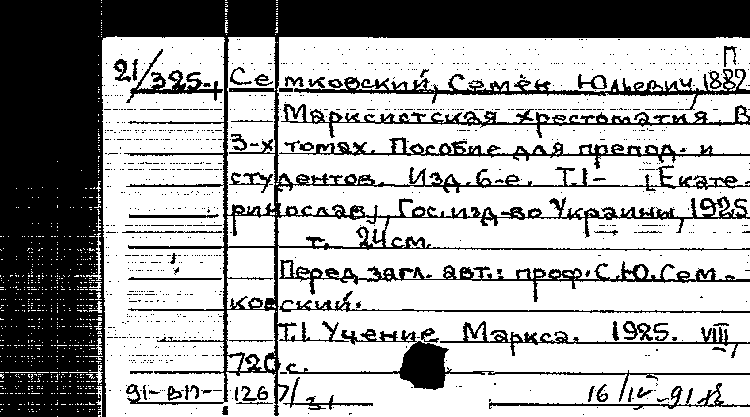 П
21/325-1 Семковский, Семён Юльевич, 1882
Марксистская хрестоматия. В
3-х томах. Пособие для препод. и
студентов. Изд. 6-е. Т.1- [Екате-
ринослав], Гос. изд-во Украины, 1925
т. 24см.
Перед загл. авт.: проф. С.Ю. Сем-
ковский.
Т.1 Учение Маркса. 1925. VIII,
720 с.
91-ВП-1267/31 16/IV-91